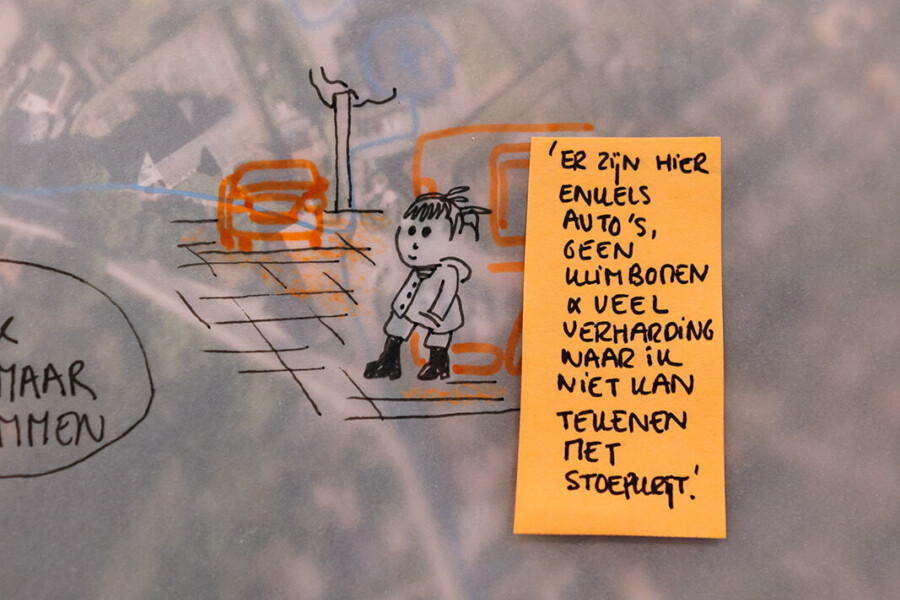 K
MAAR
MMEN
'ER ZIJN HIER
ENKELS
AUTO'S,
GEEN
KLIMBOMEN
& VEEL
VERHARDING
WAAR IK
NIET KAN
TEKENEN
MET
STOEPKRIJT.'